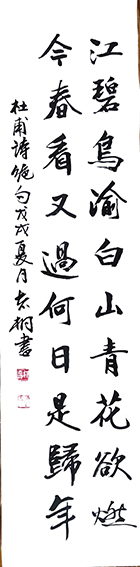 江碧鳥渝白山青花欲燃
今春看又過何日是歸年
杜甫詩絶句戊戌夏月志桐書